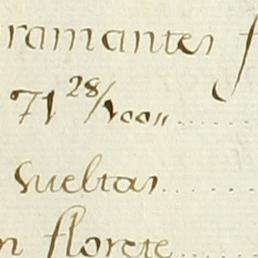 ramantes f
71 28/100
sueltas
n florete